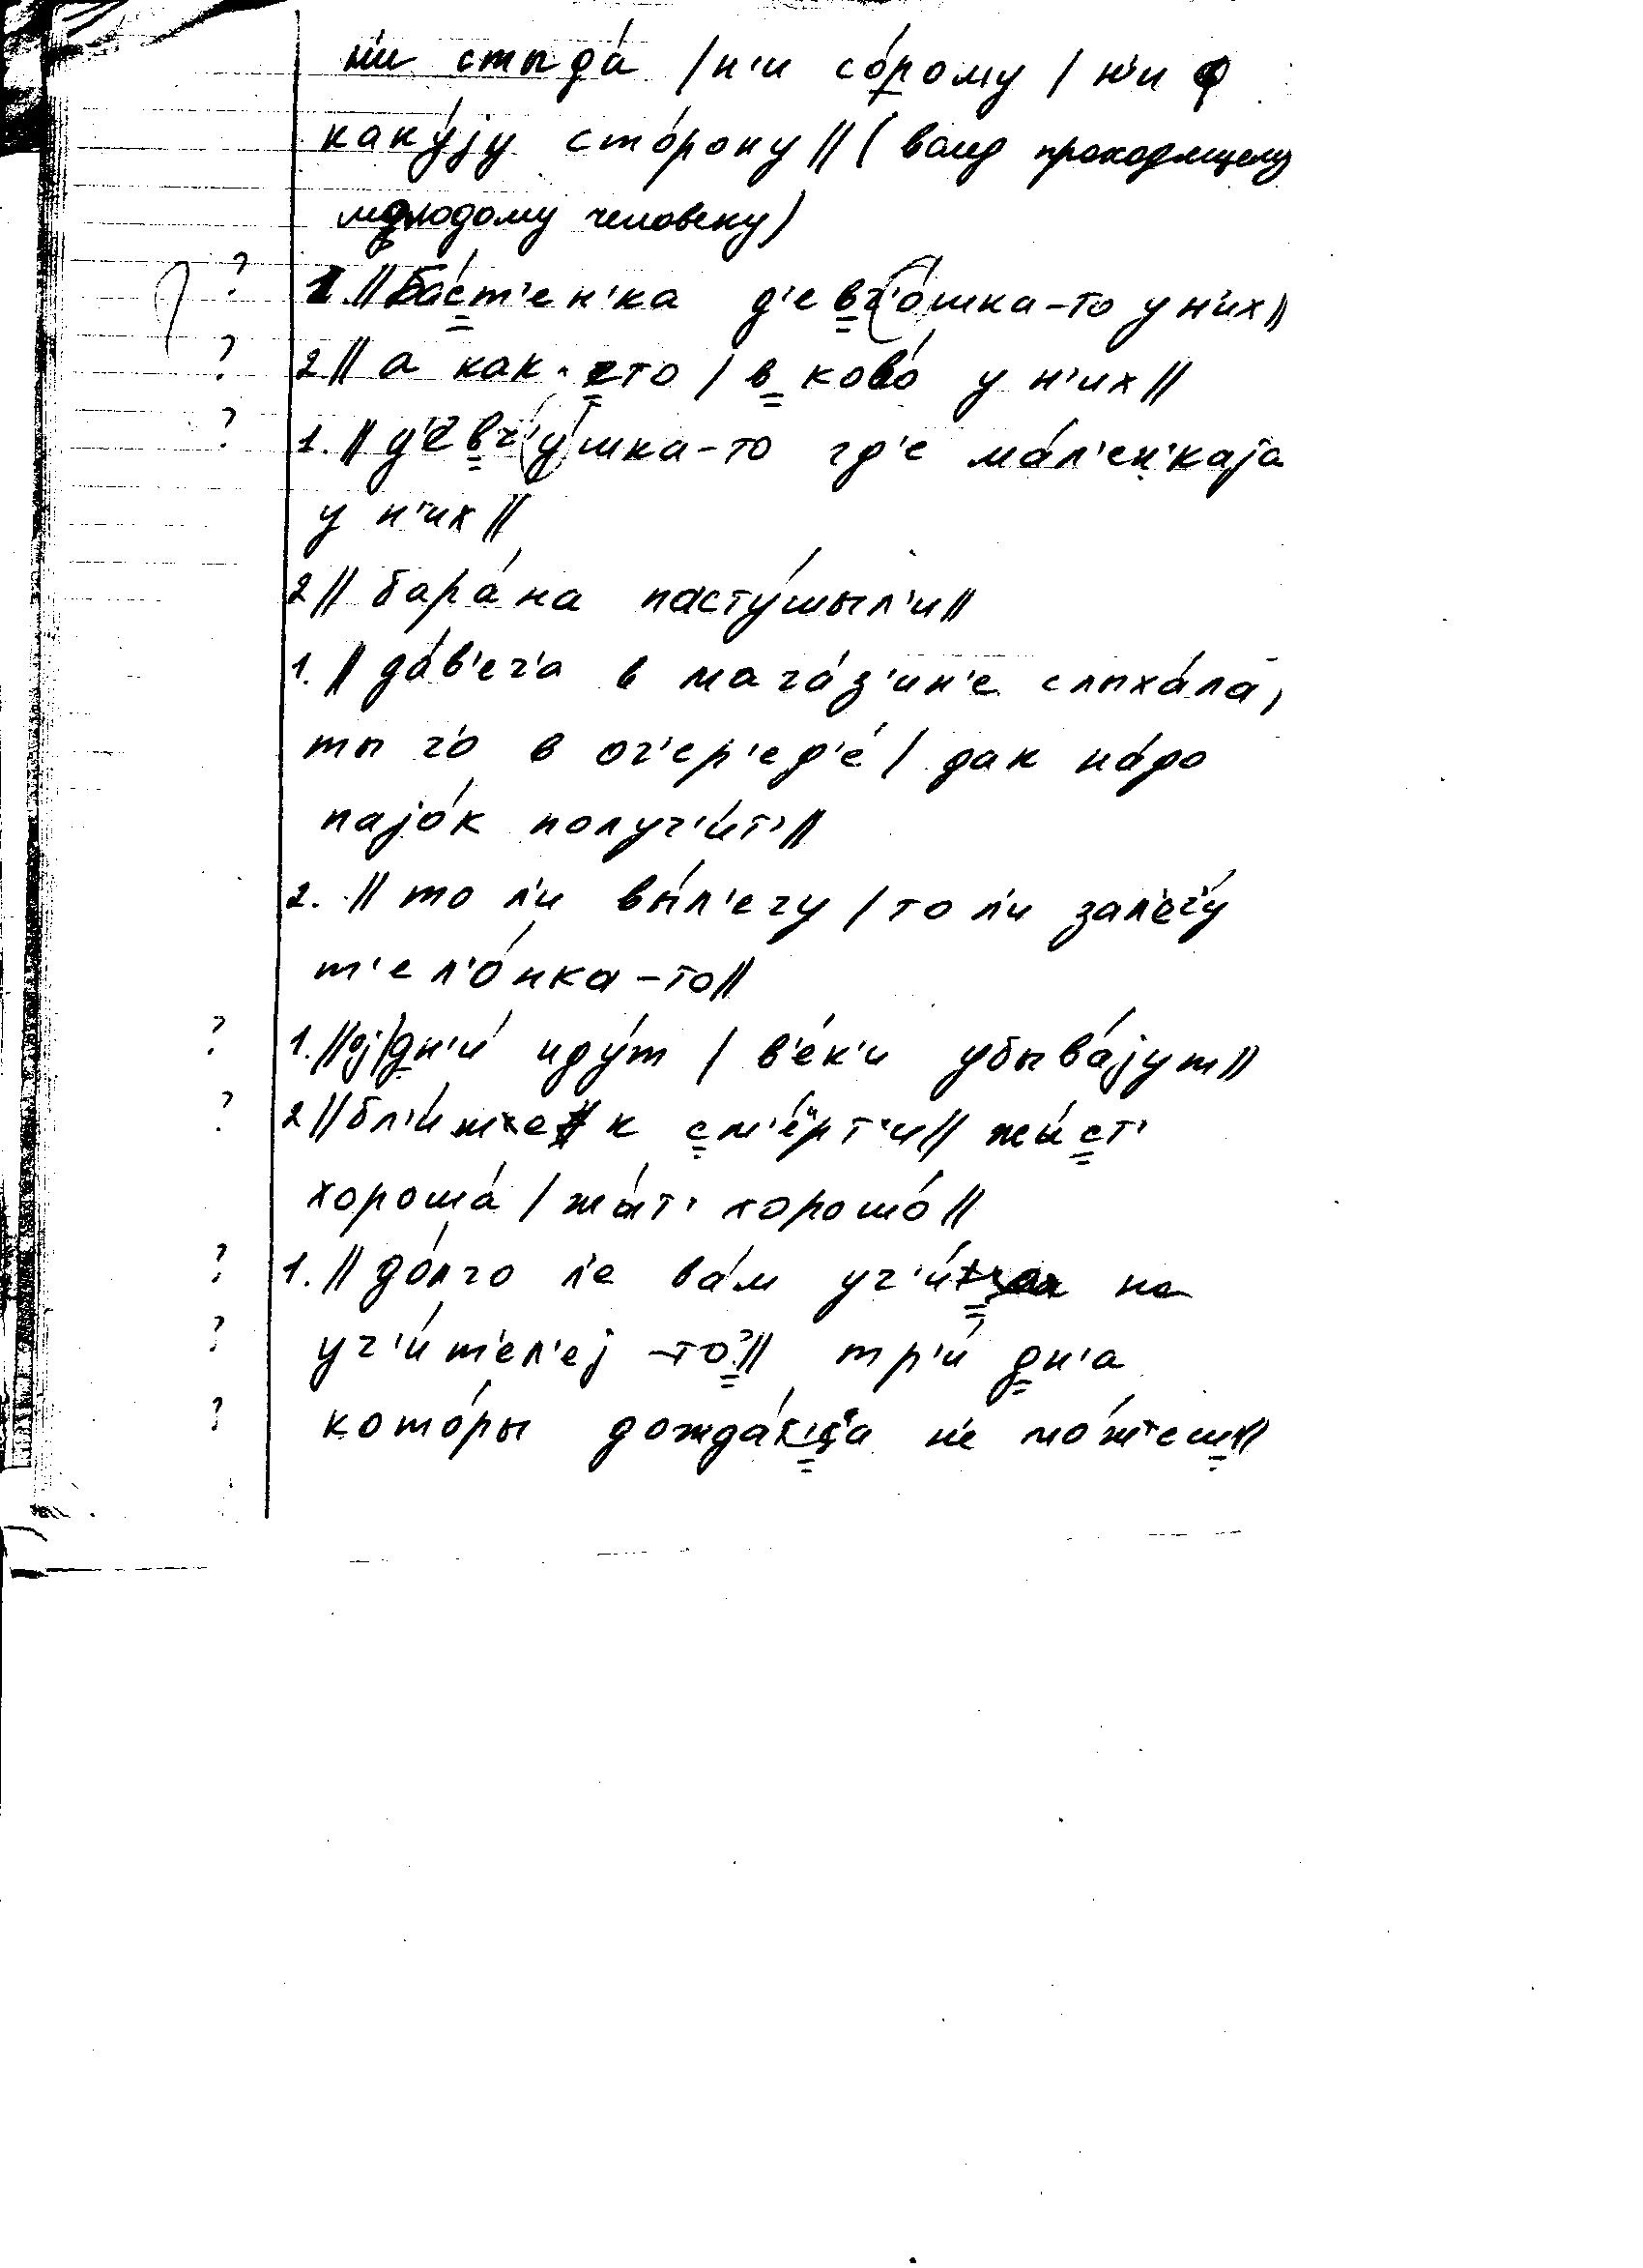 н'и стыда́ / н'и со́рому / н'и ф
каку́jу сто́рону // ( вслед проходящему
молодому человеку)
? 1. // ба́ст'ен'ка д'евч'о́шка-то у н'их //
? 2 // а как это / в ково́ у н'их //
? 1. // д'евч'у́шка-то гд'е ма́л'ен'каjа
у н'их //
2 // бара́на пасту́шыл'и //
1. // да́в'еч'а в мага́з'ин'е слыха́ла,
ты ч'о в оч'ер'ед'е́ / дак на́до
паjо́к получ'и́т' //
2. // то л'и вы́л'ечу / то л'и зал'еч'у́
т'ел'о́нка-то //
? 1. // оj / дн'и́ иду́т / в'е́к'и убыва́jут //
? 2 // бл'и́же к см'е́рт'и // жы́ст'
хороша́ / жы́т' хорошо́ //
? 1. // до́лго л'е ва́м уч'и́цца на
? уч'и́т'ел'еj -то? // тр'и́ дн'а
? кото́ры дожда́цца н'е мо́жеш //